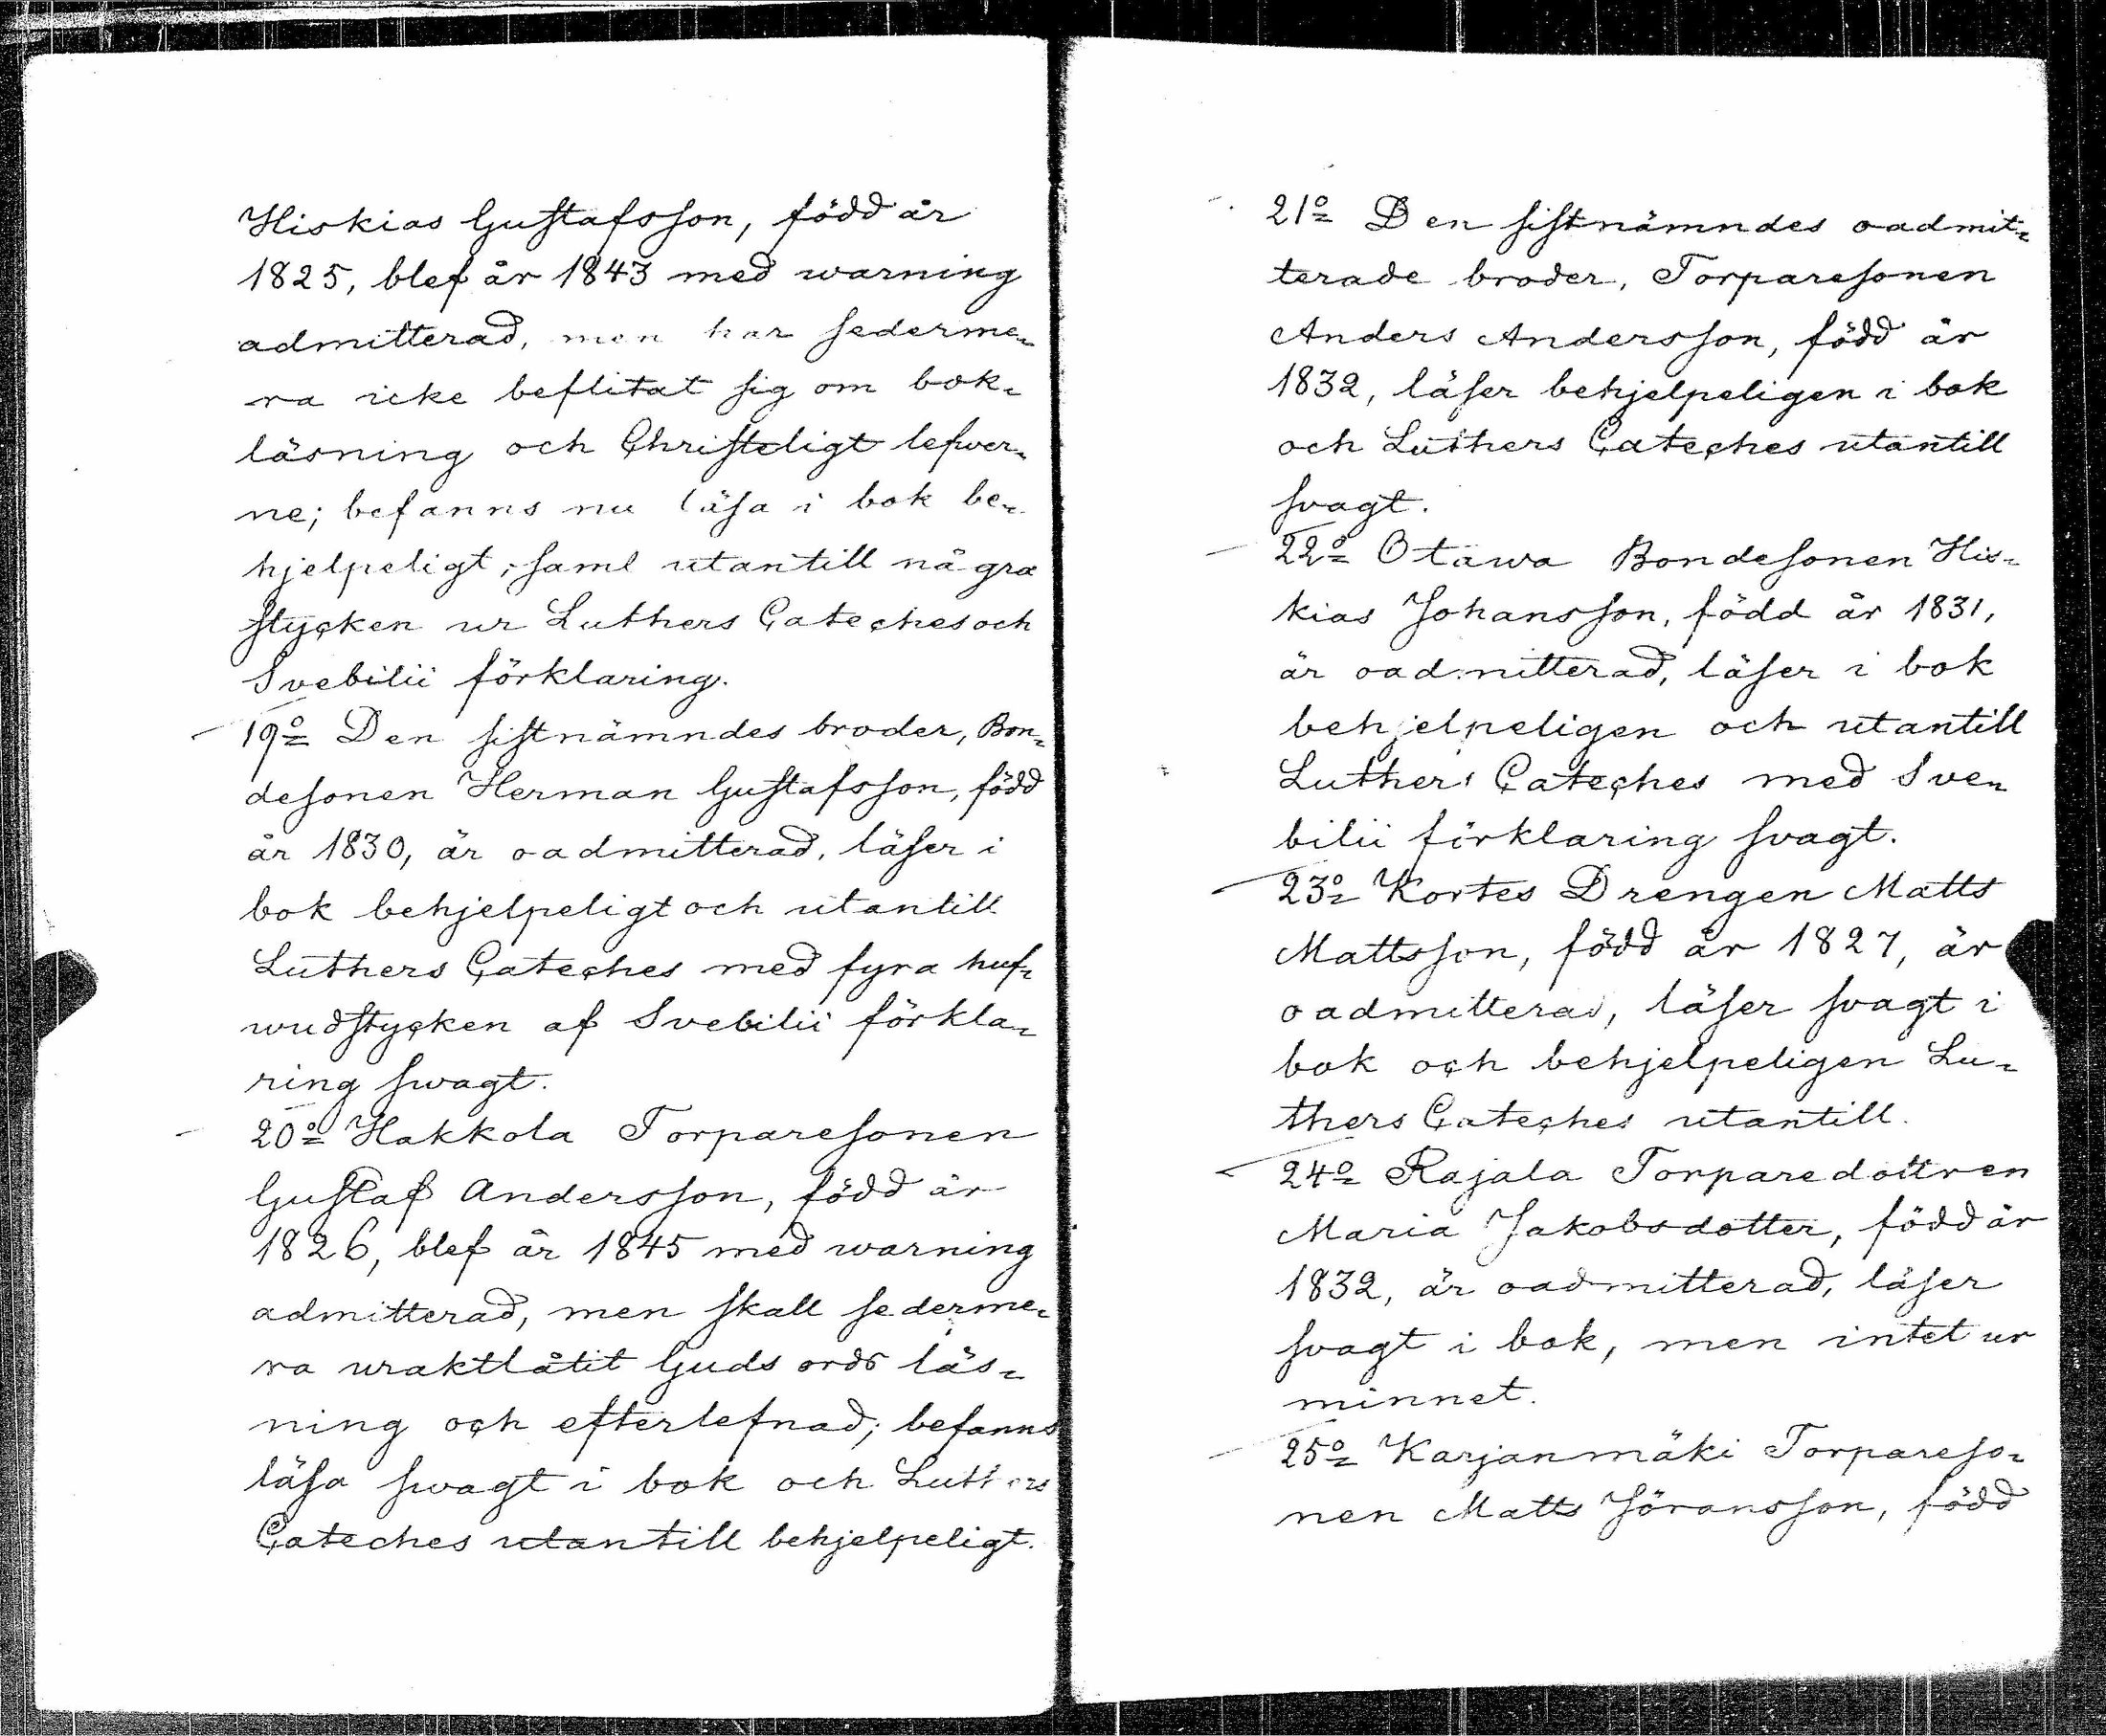 Hiskias Gustafsson, född år
1825, blef år 1843 med warning
admitterad, men har sederme-
ra icke beflitat sig om bok-
läsning och Christeligt lefwer-
ne; befanns nu läsa i bok be-
hjelpeligt, samt utantill några
stycken ur Luthers Cateches och
Svebilii förklaring.
19º Den sistnämndes broder, Bon-
desonen Herman Gustafsson, född
år 1830, är oadmitterad, läser i
bok behjelpeligt och utantill
Luthers Cateches med fyra huf-
wudstycken af Svebilii förkla-
ring swagt.
20º Hakkola Torparesonen
Gustaf Andersson, född år
1826, blef år 1845 med warning
admitterad, men skall sederme-
ra uraktlåtit Guds ords läs-
ning och efterlefnad; befanns
läsa swagt i bok och Luthers
Cateches utantill behjelpeligt.
21º Den sistnämndes oadmit-
terade broder, Torparesonen
Anders Andersson, född år
1832, läser behjelpeligen i bok
och Luthers Cateches utantill
svagt.
22º Otawa Bondesonen His-
kias Johansson, född år 1831,
är oadmitterad, läser i bok
behjelpeligen och utantill
Luthers Cateches med Sve-
bilii förklaring svagt.
23º Kortes Drengen Matts
Mattsson, född år 1827, är
oadmitterad, läser svagt i
bok och behjelpeligen Lu-
thers Cateches utantill.
24º Rajala Torparedottren
Maria Jakobsdotter, född år
1832, är oadmitterad, läser
svagt i bok, men intet ur
minnet.
25º Karjanmäki Torpareso-
nen Matts Jöransson, född